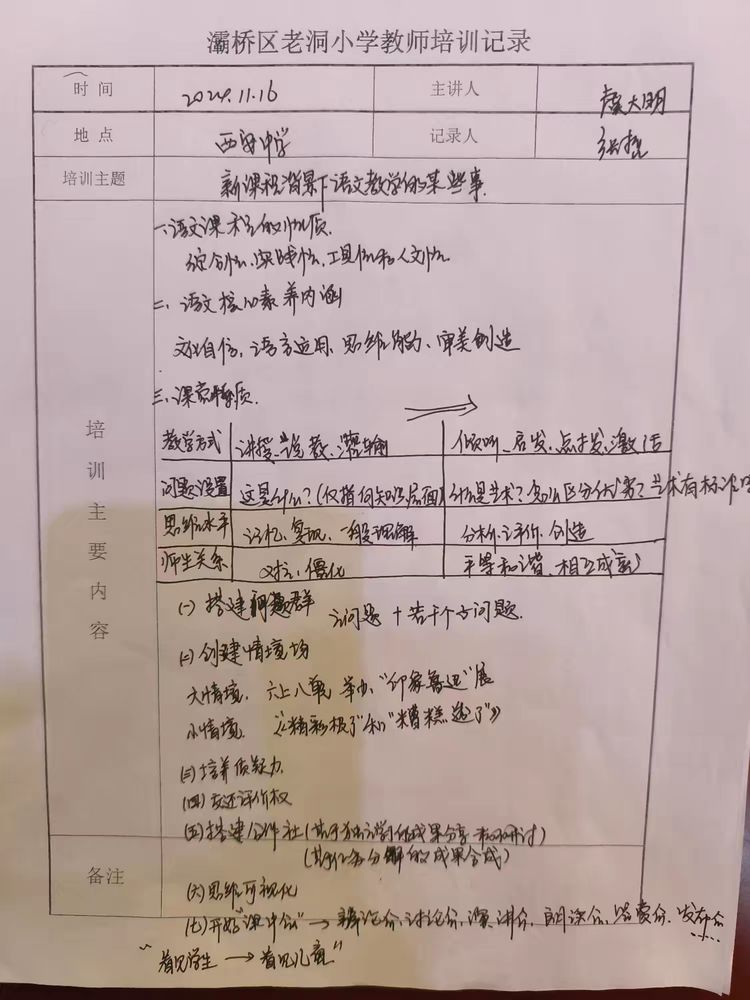 灞桥区老洞小学教师培训记录
时 间 2024.11.16 主讲人 大明
地 点 西安中学 记录人 张
培训主题 新课程背景下语文教学的某些事
培训主要内容
一、语文课程的性质.
综合性、实践性、工具性和人文性
二、语文核心素养内涵
文化自信、语言运用、思维能力、审美创造
三、课堂特质.
教学方式 讲授、说教、灌输 倾听、启发、点拨、激活
问题设置 这是什么?(仅指向知识层面) 什么是艺术?怎么区分优劣?艺术有标准吗
思维水平 记忆、复现、一般理解 分析、评价、创造
师生关系 对立、僵化 平等和谐、相互成就
(一)搭建问题群 主问题+若干个子问题.
(二)创建情境场
大情境. 六上八单 举办“印象鲁迅”展
小情境. 《“精彩极了”和“糟糕透了”》
(三)培养质疑力
(四)交还评价权
(五)搭建合作社(基于独立学习的成果分享和研讨)
(基于任务分解的成果合成)
备注
(六)思维可视化
(七)开好“课中会”→辩论会、讨论会、演讲会、朗读会、发布会
“看见学生→看见儿童”